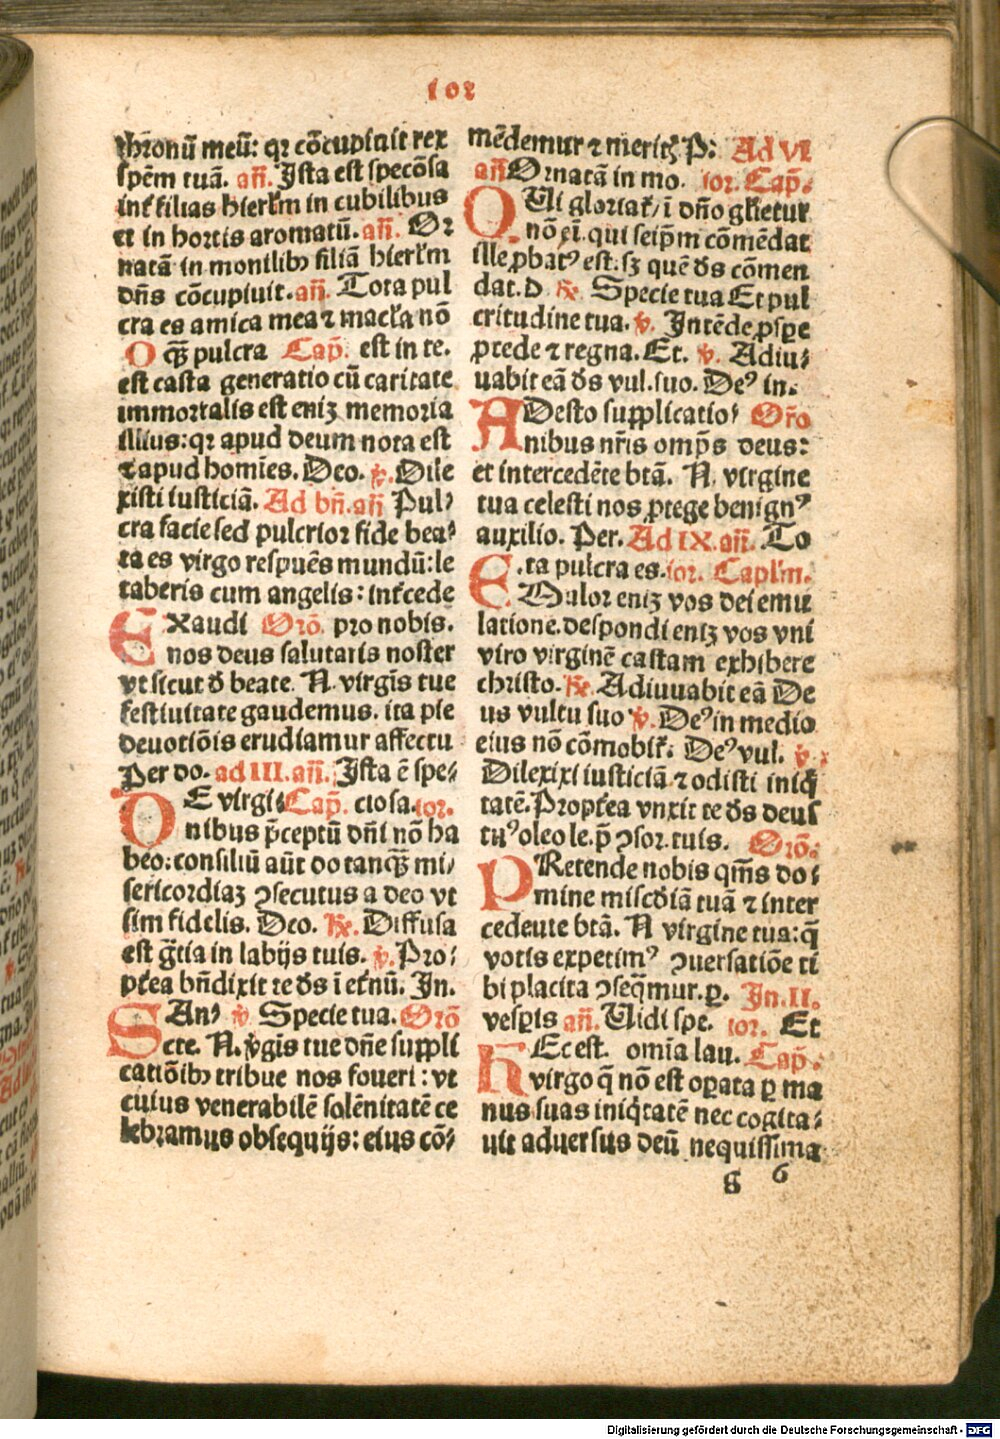 102
thronū meū: qꝛ cōcupiuit rex
spēm tuā. añ. Ista est specōsa
int̄ filias hierl̄m in cubilibus
et in hortis aromatū. añ. Oꝛ
natā in monilibꝫ filiā hierl̄m
dn̄s cōcupiuit. añ. Tota pul
cra es amica mea ⁊ mac̄la nō
O qꝫ̄ pulcra Cap̄. est in te.
est casta generatio cū caritate
immortalis est enīꝫ memoria
illius: qꝛ apud deum nota est
⁊ apud homīes. Deo. ꝟ. Dile
xisti iusticiā. Ad bn̄. añ Pul⸗
cra facie sed pulcrior fide bea⸗
ta es virgo respuēs mundū: le
taberis cum angelis: int̄cede
EXaudi Orō. pro nobis.
nos deus salutaris noster
vt sicut d̄ beate. N. virgīs tue
festiuitate gaudemus. ita pie
deuotiōis erudiamur affectu
Per do. ad III. añ. Ista ē spe⸗
DE virgi⸗ Cap̄. ciosa. ioꝛ.
nibus p̄ceptū dn̄i nō ha
beo: consiliū aūt do tanqꝫ̄ mi⸗
sericordiaꝫ ↄsecutus a deo vt
sim fidelis. Deo. ℟. Diffusa
est gr̄tia in labijs tuis. ꝟ. Pro⸗
pt̄ea bn̄dixit te ds̄ ī et̄nū. In.
SAn⸗ ꝟ. Specie tua. Orō
cte. N. v̄gīs tue dn̄e suppli
catiōibꝫ tribue nos foueri: vt
cuius venerabilē solēnitatē ce
lebramus obsequijs: eius cō⸗
mēdemur ⁊ meritꝭ P: Ad VI
añ Ornatā in mo. ioꝛ. Cap̄.
QUi gloriat̄, ī dn̄o gl̄ietur
nō eī. qui seip̄m cōmēdat
ille ꝓbatꝰ est: sꝫ quē ds̄ cōmen
dat. D ℟. Specie tua Et pul
critudine tua. ꝟ. Intēde ꝓspe
ꝓcede ⁊ regna. Et. ꝟ. Adiu⸗
uabit eā ds̄ vul. suo. Deꝰ in.
ADesto supplicatio⸗ Orō
nibus nr̄is omp̄s deus:
et intercedēte btā. N. virgine
tua celesti nos ꝓtege benignꝰ
auxilio. Per. Ad IX. añ. To
E. ta pulcra es. ioꝛ. Capl̄m.
Mulor enīꝫ vos dei emu
latione. despondi enīꝫ vos vni
viro virginē castam exhibere
christo. ℟. Adiuuabit eā De
us vultu suo ꝟ. Deꝰ in medio
eius nō cōmobit̄. Deꝰ vul. ꝟ.
Dilexixi iusticiā ⁊ odisti iniq̄
tatē. Propt̄ea vnxit te ds̄ deus
tuꝰ oleo le. p̄ ↄsor. tuis. Orō.
PRetende nobis qm̄s do⸗
mine mis̄cdiā tuā ⁊ inter
cedente btā. N virgine tua: q̄
votis expetimꝰ ↄuersatiōe ti
bi placita ↄseq̄mur. ꝑ. In. II.
vesꝑis añ. Uidi spe. ioꝛ. Et
HEc est. omīa lau. Cap̄.
virgo q̄ nō est oꝑata ꝑ ma
nus suas iniq̄tatē nec cogita⸗
uit aduersus deū nequissima
g 6
Digitalisierung gefördert durch die Deutsche Forschungsgemeinschaft - DFG